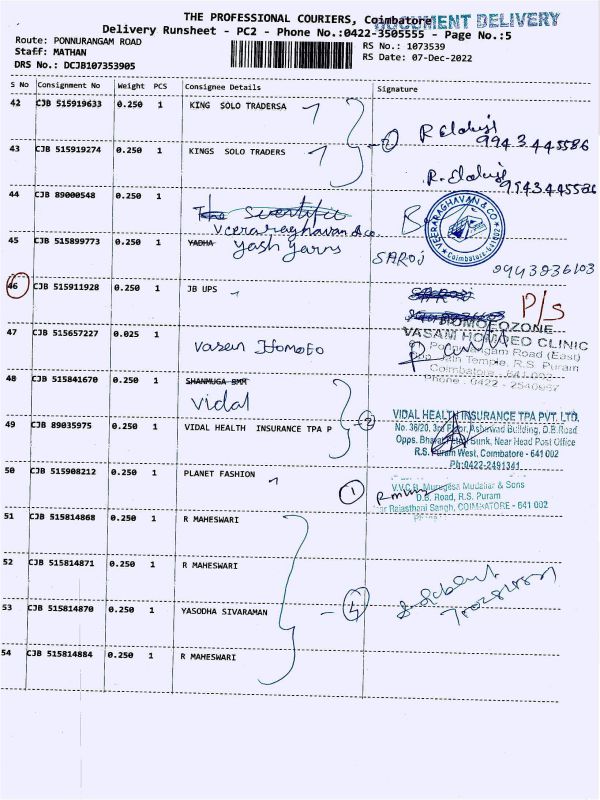 THE PROFESSIONAL COURIERS, Coimbatore
DOCUMENT DELIVERY
Delivery Runsheet - PC2 - Phone No.:0422-3505555 - Page No.:5
Route: PONNURANGAM ROAD
RS No.: 1073539
Staff: MATHAN
RS Date: 07-Dec-2022
DRS No.: DCJB107353905
S No Consignment No Weight PCS Consignee Details Signature
42 CJB 515919633 0.250 1 KING SOLO TRADERSA
9943445586
43 CJB 515919274 0.250 1 KINGS SOLO TRADERS
2
9943445586
44 CJB 89000548 0.250 1 The Scientific
Veeraraghavan & co
VEERARAGHAVAN & CO
Coimbatore-641002
45 CJB 515899773 0.250 1 YADHA Yash Yarns
SAROJ
9943936103
46 CJB 515911928 0.250 1 JB UPS
P/S
HOMOEOZONE
47 CJB 515657227 0.025 1 Vasen Homoeo
VASAM HOMOEO CLINIC
Ponnurangam Road (East)
Temple, R.S. Puram
Coimbatore - 641 002
Phone : 0422 - 2540967
48 CJB 515841670 0.250 1 SHANMUGA
Vidal
2
49 CJB 89035975 0.250 1 VIDAL HEALTH INSURANCE TPA P
VIDAL HEALTH INSURANCE TPA PVT. LTD.
No. 36/20, 3rd Floor, Ashirwad Building, D.B.Road
Opps. Bharat Bunk, Near Head Post Office
R.S. Puram West, Coimbatore - 641 002
Ph:0422-2491341
50 CJB 515908212 0.250 1 PLANET FASHION
1
V.V.C.R. Murugesa Mudaliar & Sons
D.B. Road, R.S. Puram
Rajasthani Sangh, COIMBATORE - 641 002
51 CJB 515814868 0.250 1 R MAHESWARI
52 CJB 515814871 0.250 1 R MAHESWARI
53 CJB 515814870 0.250 1 YASODHA SIVARAMAN
4
54 CJB 515814884 0.250 1 R MAHESWARI